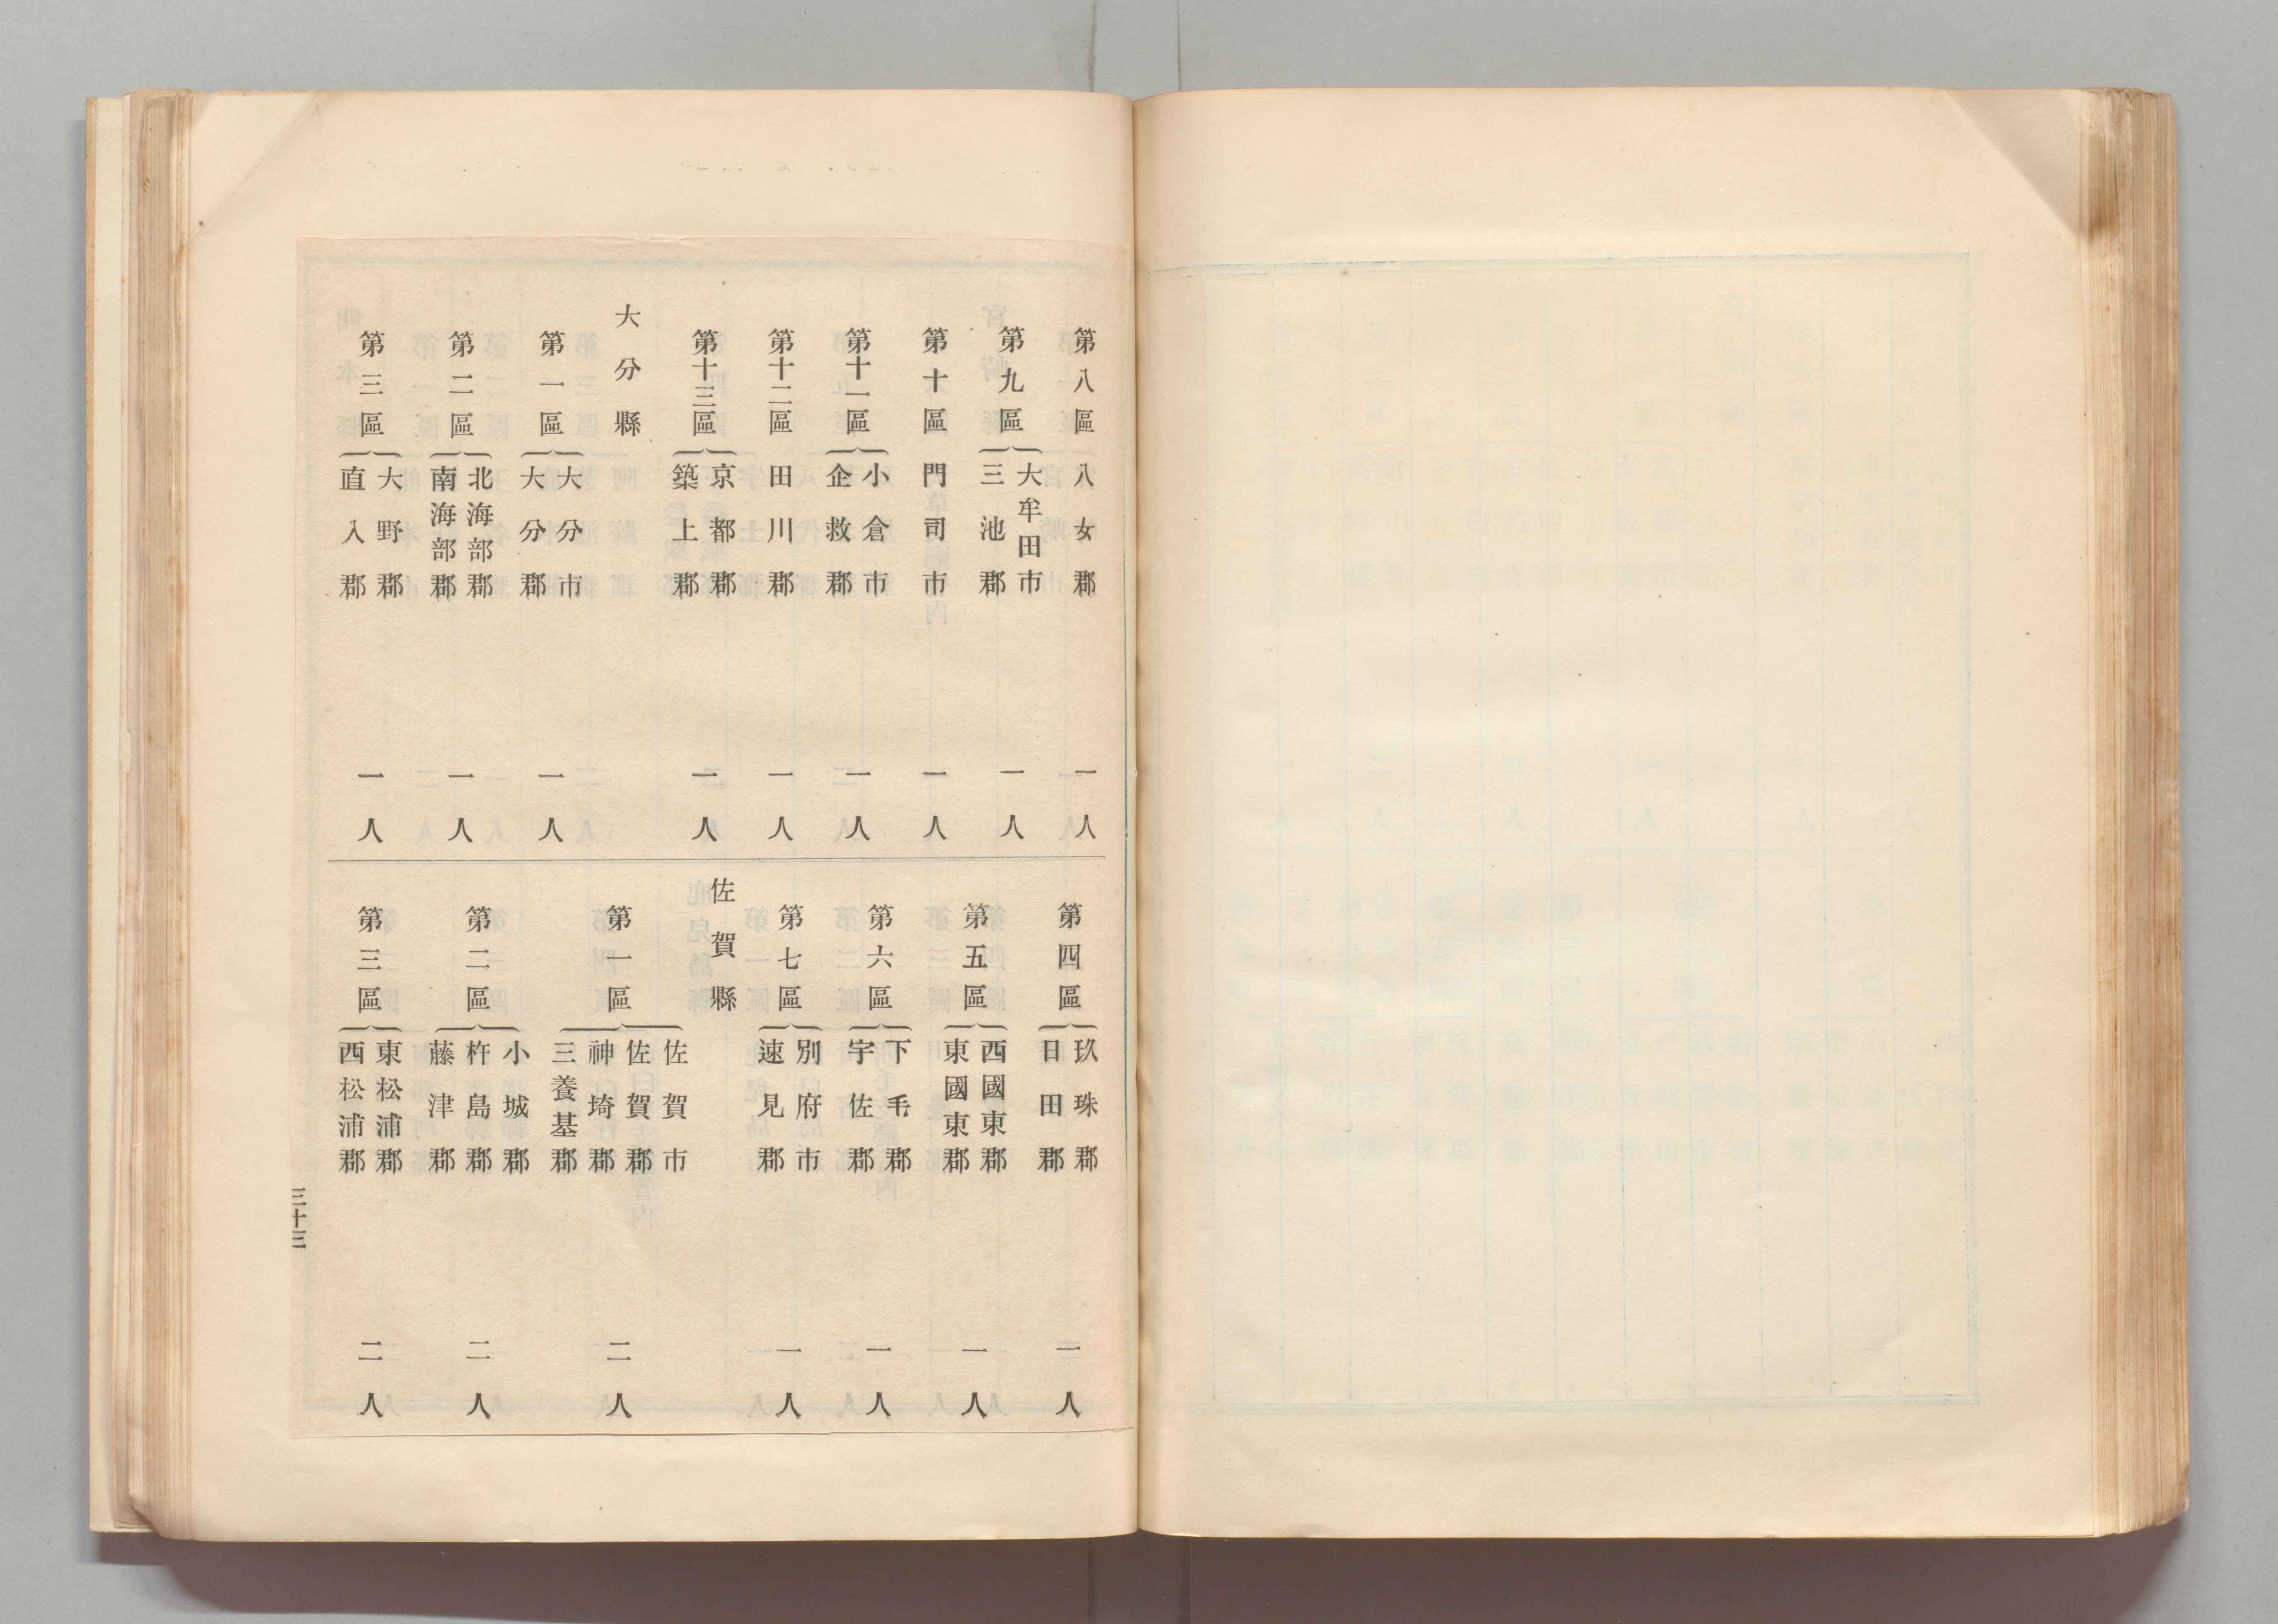 第八區 八女郡 一人
第九區 大牟田市 三池郡 一人
第十區 門司市 一人
第十一區 小倉市 企救郡 一人
第十二區 田川郡 一人
第十三區 京都郡 築上郡 一人
大分縣
第一區 大分市 大分郡 一人
第二區 北海部郡 南海部郡 一人
第三區 大野郡 直入郡 一人
第四區 玖珠郡 日田郡 一人
第五區 西國東郡 東國東郡 一人
第六區 下毛郡 宇佐郡 一人
第七區 別府市 速見郡 一人
佐賀縣
第一區 佐賀市 佐賀郡 神埼郡 三養基郡 二人
第二區 小城郡 杵島郡 藤津郡 二人
第三區 東松浦郡 西松浦郡 二人
三十三